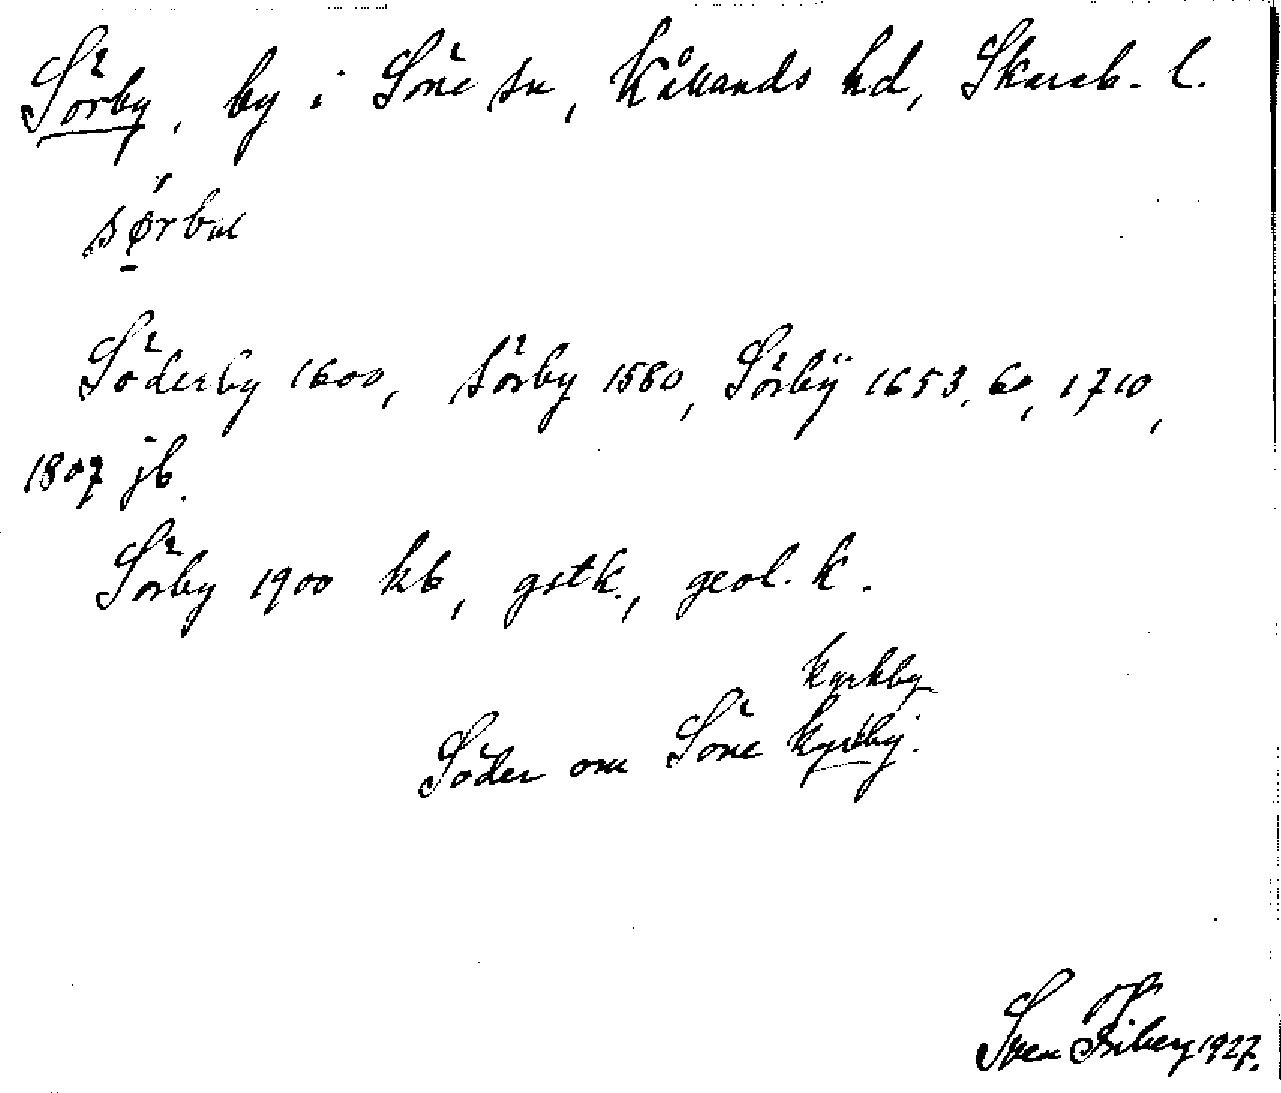 Sörby, by i Söne sn, Kållands hd, Skarab. l.
Söderby 1600, Sörby 1580, Sörbÿ 1653, 60, 1710,
1807 jb.
Sörby 1900 kb, gstk., geol. k.
kyrkby
Söder om Söne kyrkby.
Sven Friberg 1927.